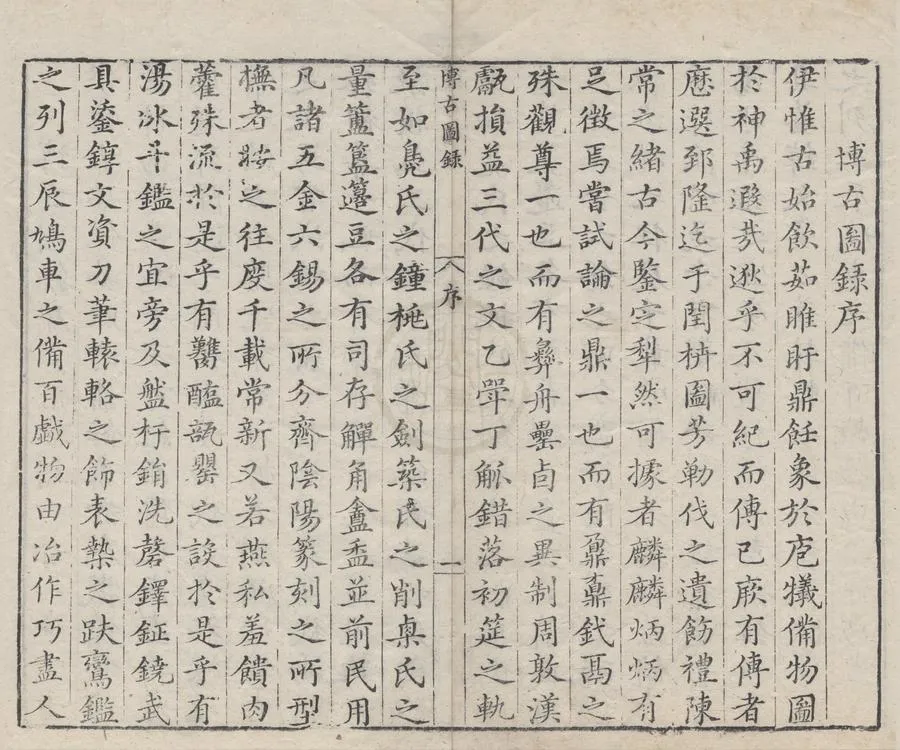 博古圖錄序
伊惟古始飲茹睢盱鼎飪象於庖犧備物圖
於神禹遐哉逖乎不可紀而傳已厥有傳者
歷選郅隆迄于閏枿圖芳勒伐之遺飭禮陳
常之緒古今鑒定犁然可據者麟麟炳炳有
足徵焉嘗試論之鼎一也而有鼐鼒釴鬲之
殊觀尊一也而有彝舟罍卣之異制周敦漢
甗損益三代之文乙斝丁觚錯落初筵之軌
博古圖錄
序
一
至如鳧氏之鐘桃氏之劍築氏之削㮚氏之
量簠簋籩豆各有司存觶角盦盉並前民用
凡諸五金六錫之所分齊陰陽篆刻之所型
橅者按之往度千載常新又若燕私羞饋肉
藿殊流於是乎有鐎醞瓿罌之設於是乎有
湯冰斗鑑之宜旁及盤杅鋗洗磬鐸鉦鐃武
具鍌錞文資刀筆轅輅之飾表槷之趺鸞鑑
之列三辰鳩車之備百戲物由冶作巧盡人